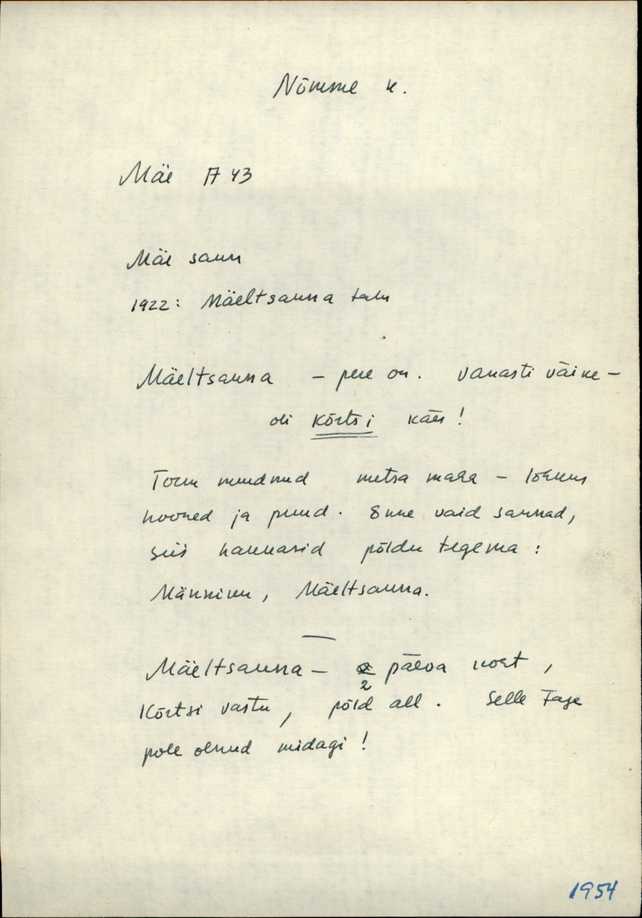 Nõmme k.
Mäe A 43
Mäe saun
1922: Mäeltsauna talu
Mäeltsauna – pere on. Vanasti väike –
oli Kõrtsi käes!
Torm murdnud metsa maha – lõhkus
hooned ja puud. Enne vaid saunad,
siis hakkasid põldu tegema:
Männiku, Mäeltsauna.
Mäeltsauna – 2 päeva koht,
Kõrtsi vastu, põld all. Selle taga
pole olnud midagi!
1954